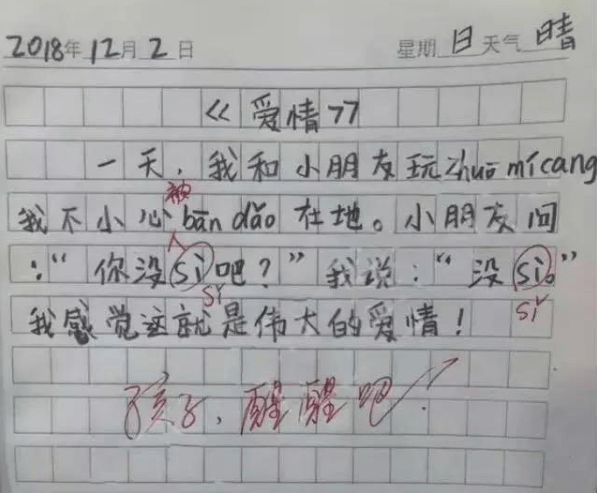 2018年12月2日 星期日 天气晴
《爱情》
一天，我和小朋友玩zhuō mícang
我不小心被bān dǎo在地。小朋友问
：“你没sì吧？”我说：“没sì。”
sǐ sǐ
我感觉这就是伟大的爱情！
孩子，醒醒吧！